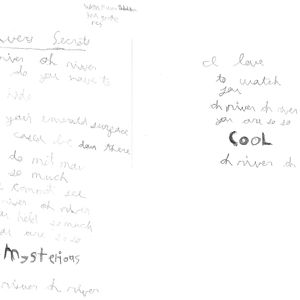 Secrets
river oh river
do you have to
hide
your emerald surface
could be down there
do not
so much
I cannot see
river oh river
you hold so much
you are so so
Mysterious
river oh river
I love
to watch
you
oh river oh river
you are so so
COOL
oh river oh